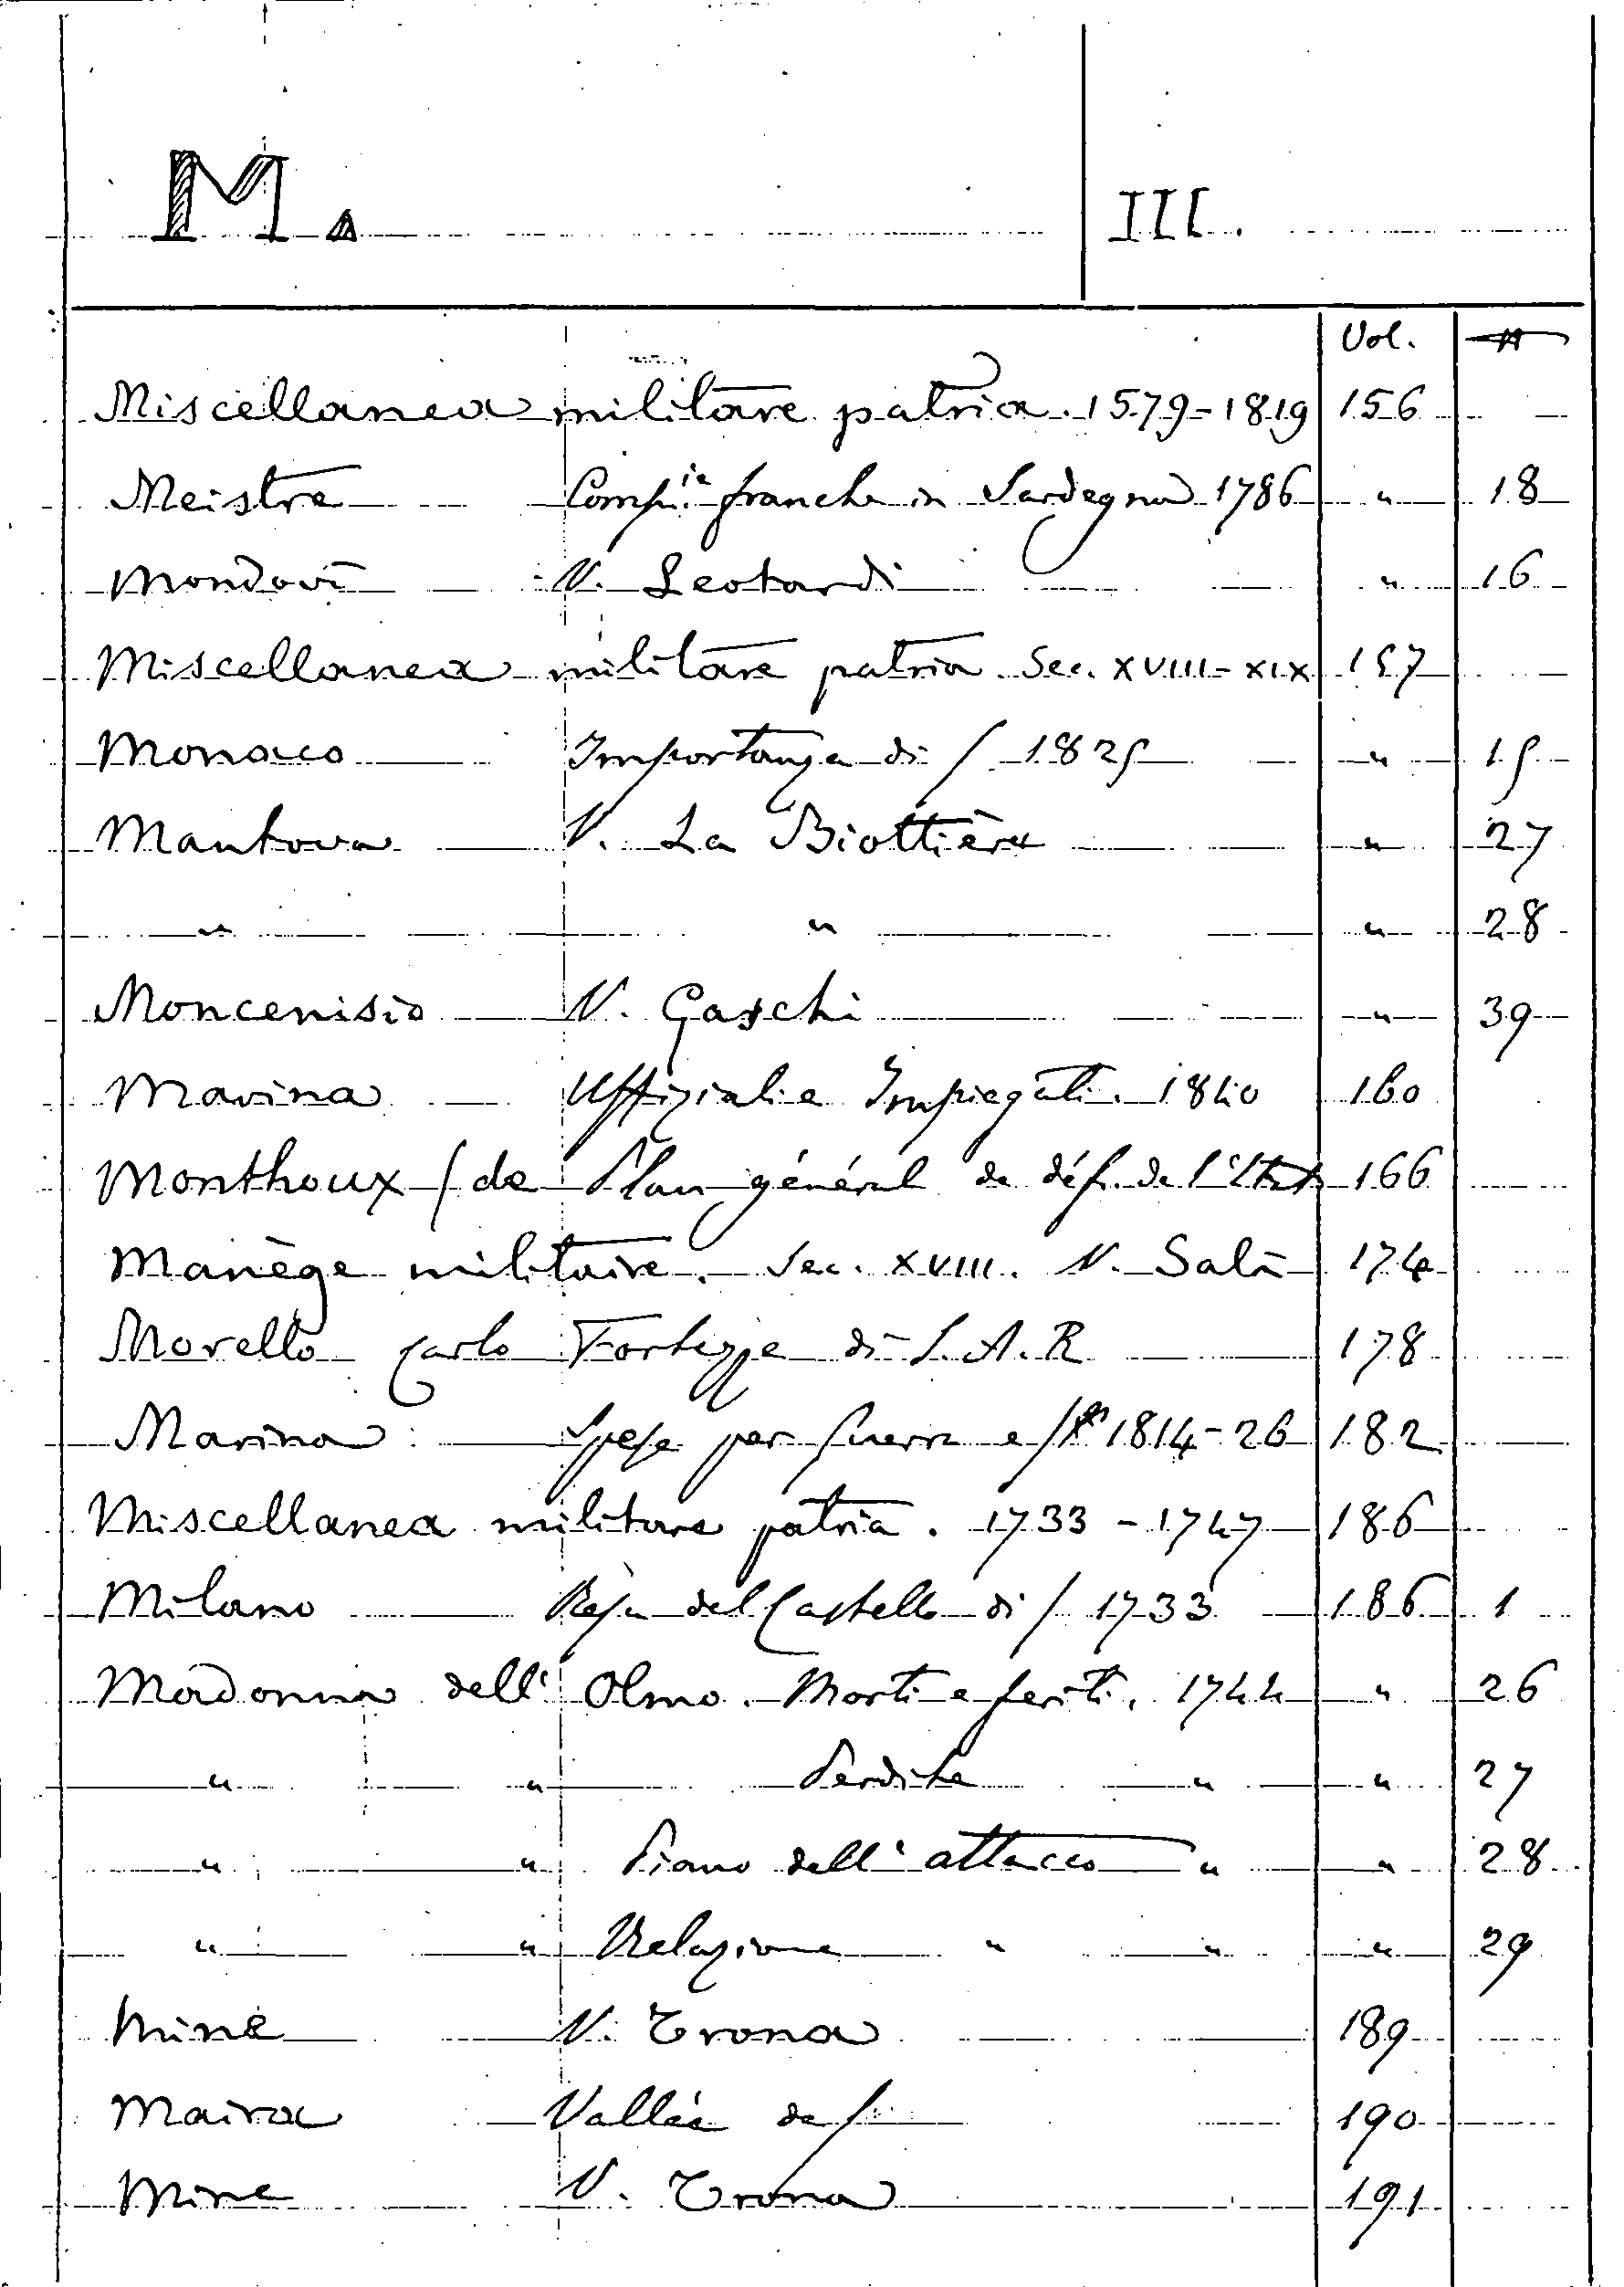 M. III.
Vol. N
Miscellanea militare patria. 1579-1819 156
Meistre Comp.ie franche in Sardegna 1786 " 18
Mondovì V. Leotardi " 16
Miscellanea militare patria. Sec. XVIII-XIX 157
Monaco Importanza di / 1825 " 15
Mantova V. La Biottière " 27
" " " 28
Moncenisio V. Gaschi " 39
Marina Uffiziali e Impiegati. 1840 160
Monthoux (de Plan général de déf. de l'État 166
Manège militaire. Sec. XVIII. V. Salà 174
Morello Carlo Fortezze di S.A.R 178
Marina Spese per Guerra e 1814-26 182
Miscellanea militare patria. 1733-1747 186
Milano Resa del Castello di / 1733 186 1
Madonna dell' Olmo. Morti e feriti. 1744 " 26
" " Perdite " " 27
" " Piano dell'attacco " " 28
" " Relazione " " " 29
Mine V. Trona 189
Maira Vallée de / 190
Mine V. Trona 191